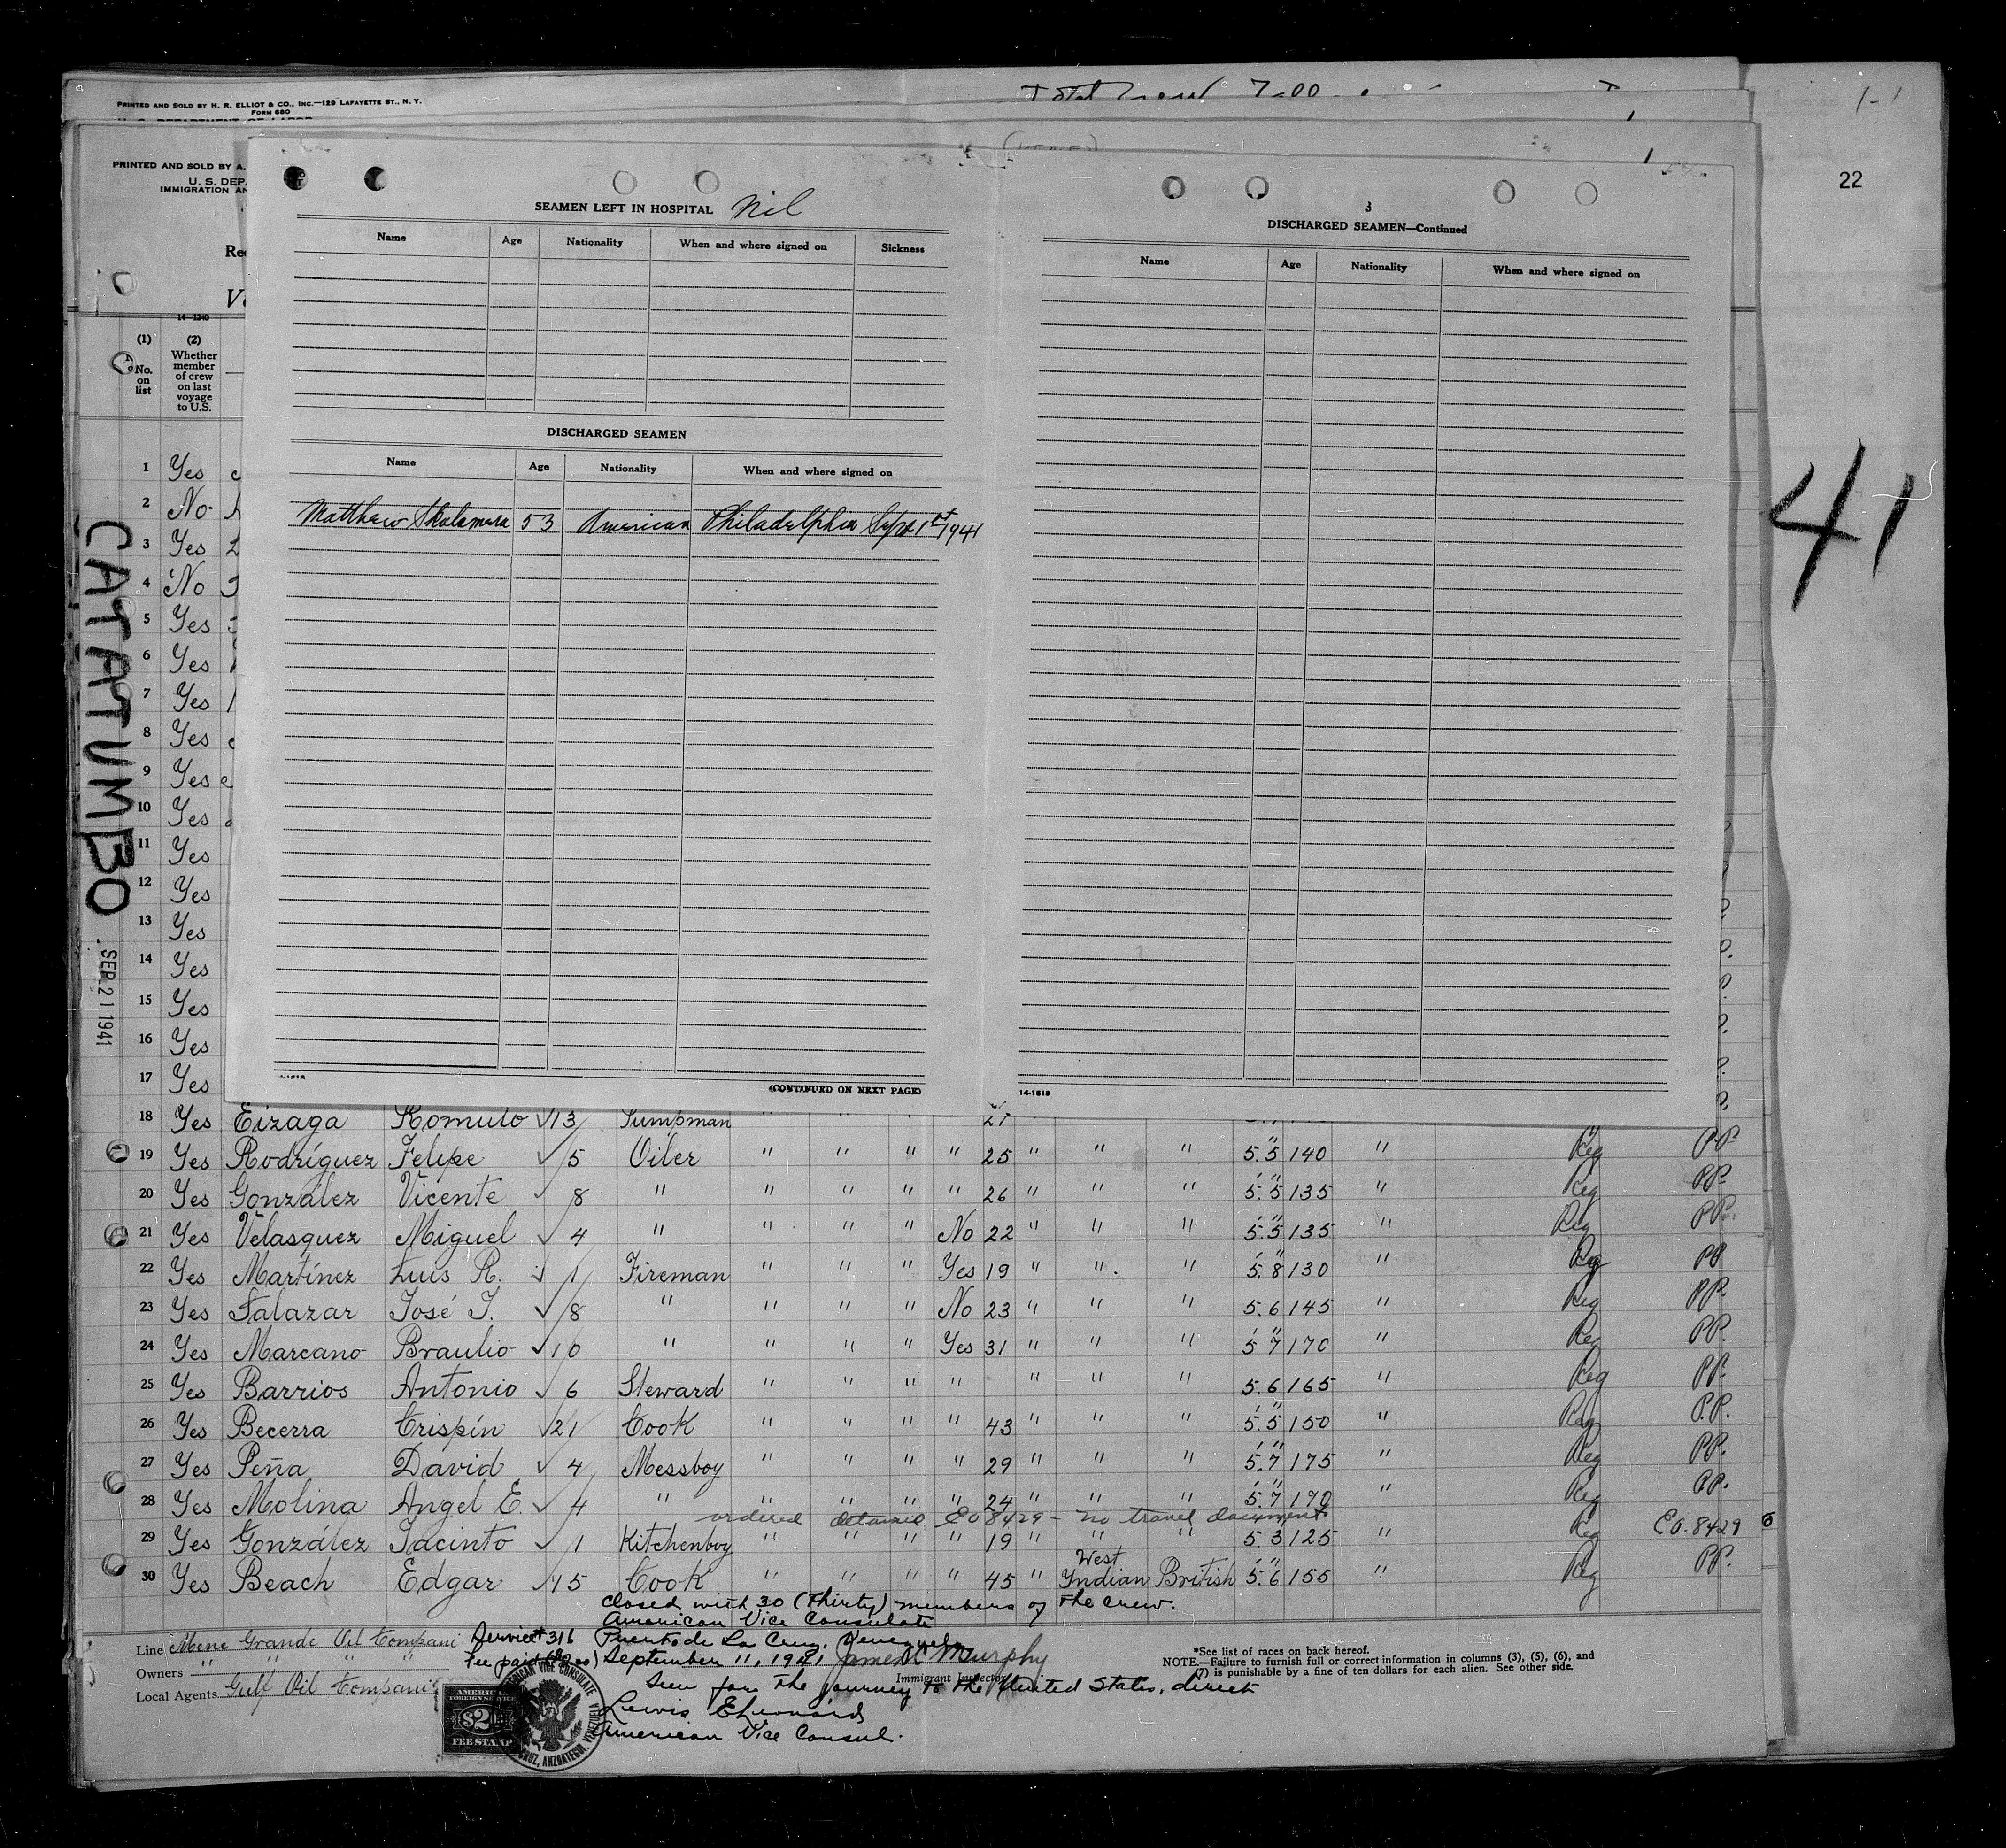 PRINTED AND SOLD BY H. R. ELLIOT & CO., INC.—129 LAFAYETTE ST., N. Y.
FORM 680
U. S. DEPARTMENT OF LABOR
Total 7-00
1-1
22
41
PRINTED AND SOLD BY A.
U. S. DEP
IMMIGRATION AN
14-1240
(1)
No. on list
(2)
Whether member of crew on last voyage to U.S.
CATATUMBO
SEP 21 1941
SEAMEN LEFT IN HOSPITAL Nil
Name Age Nationality When and where signed on Sickness
DISCHARGED SEAMEN
Name Age Nationality When and where signed on
Matthew Skalamera 53 American Philadelphia Sept 1st 1941
(CONTINUED ON NEXT PAGE)
3
DISCHARGED SEAMEN—Continued
Name Age Nationality When and where signed on
14-1618
1 Yes
2 No
3 Yes
4 No
5 Yes
6 Yes
7 Yes
8 Yes
9 Yes
10 Yes
11 Yes
12 Yes
13 Yes
14 Yes
15 Yes
16 Yes
17 Yes
18 Yes Eizaga Romulo √ 13 Pumpman " 21
19 Yes Rodríguez Felipe √ 5 Oiler " " " " 25 " " " 5'.5" 140 " Reg P.P.
20 Yes González Vicente √ 8 " " " " " 26 " " " 5'.5" 135 " Reg P.P.
21 Yes Velasquez Miguel √ 4 " " " " No 22 " " " 5'.5" 135 " Reg P.P.
22 Yes Martínez Luis R. √ 1 Fireman " " " Yes 19 " " " 5'.8" 130 " Reg PP
23 Yes Salazar José J. √ 8 " " " " No 23 " " " 5.6 145 " Reg P.P.
24 Yes Marcano Braulio √ 10 " " " " Yes 31 " " " 5'7" 170 " Reg P.P.
25 Yes Barrios Antonio √ 6 Steward " " " " " " " 5.6 165 " Reg P.P.
26 Yes Becerra Crispín √ 21 Cook " " " " 43 " " " 5'.5" 150 " Reg P.P.
27 Yes Peña David √ 4 Messboy " " " " 29 " " " 5'.7" 175 " Reg P.P.
28 Yes Molina Angel E. √ 4 " " " " " 24 " " " 5'.7" 170 " Reg P.P.
ordered detained Eo 8429 - no travel documents
29 Yes González Jacinto √ 1 Kitchenboy " " " " 19 " " " 5.3 125 " Reg E.O. 8429
30 Yes Beach Edgar √ 15 Cook " " " " 45 " West Indian British 5'.6" 155 " Reg P.P.
Closed with 30 (Thirty) members of the crew.
American Vice Consulate
Line Mene Grande Oil Compani Service # 316 Puerto de La Cruz, Venezuela
Owners " " " " Fee paid September 11, 1941 James Murphy
Immigrant Inspector
Local Agents Gulf Oil Compani Seen for the journey to the United States, direct
Lewis E Leonard
American Vice Consul.
AMERICAN FOREIGN SERVICE $2 FEE STAMP
AMERICAN VICE CONSULATE CRUZ, ANZOATEGUI, VENEZUELA
*See list of races on back hereof.
NOTE.—Failure to furnish full or correct information in columns (3), (5), (6), and
(7) is punishable by a fine of ten dollars for each alien. See other side.